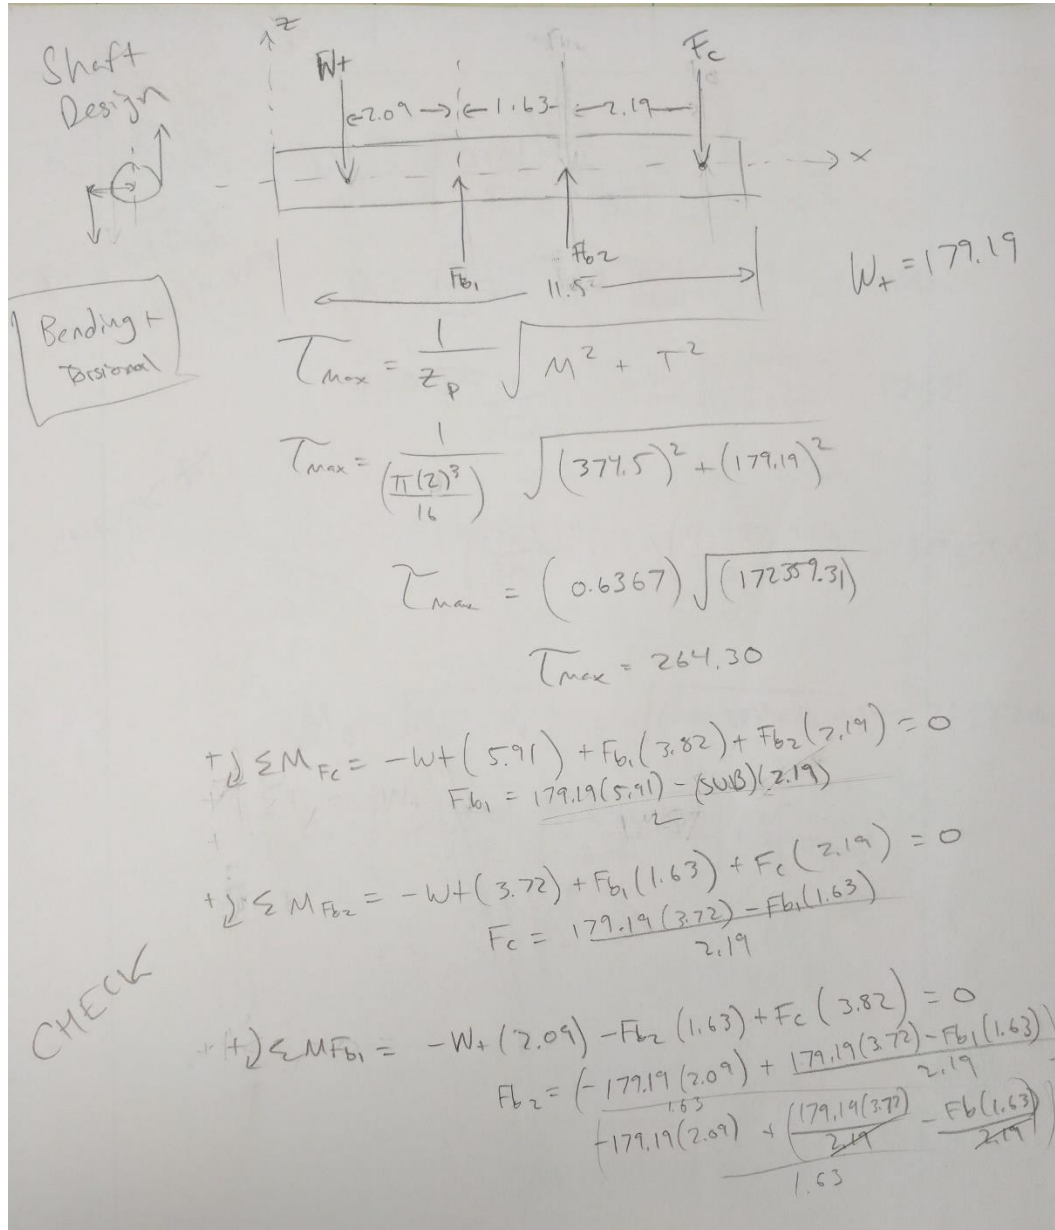 Shaft
Design
z
Wt
Fc
2.09
1.63
2.19
x
Fb1
Fb2
11.5
Wt = 179.19
Bending +
Torsional
τmax = 1/Zp √(M² + T²)
τmax = 1/(π(2)³/16) √((374.5)² + (179.19)²)
τmax = (0.6367) √(172359.31)
τmax = 264.30
+↻ ΣM Fc = -Wt(5.91) + Fb1(3.82) + Fb2(2.19) = 0
Fb1 = 179.19(5.91) - (SUB)(2.19) / 2
+↻ ΣM Fb2 = -Wt(3.72) + Fb1(1.63) + Fc(2.19) = 0
Fc = 179.19(3.72) - Fb1(1.63) / 2.19
CHECK
+↻ ΣM Fb1 = -Wt(2.09) - Fb2(1.63) + Fc(3.82) = 0
Fb2 = (-179.19(2.09) / 1.63 + 179.19(3.72) - Fb1(1.63) / 2.19
(-179.19(2.09) + (179.19(3.72) / 2.19 - Fb(1.63) / 2.19) / 1.63